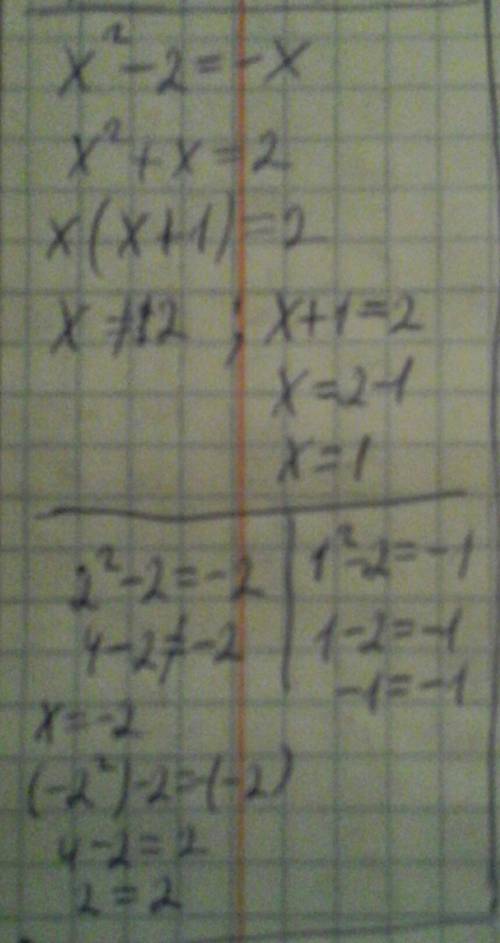 x²-2=-x
x²+x=2
x(x+1)=2
x ≠ 2 ; x+1=2
x=2-1
x=1
2²-2=-2
4-2≠-2
1²-2=-1
1-2=-1
-1=-1
x=-2
(-2²)-2=-(-2)
4-2=2
2=2